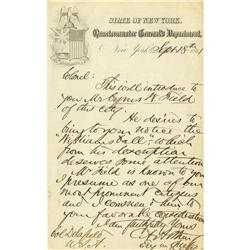 STATE OF NEW YORK.
Quartermaster General's Department,
New York Sept 18th 1861
Colonel:
This will introduce to
you Mr Cyrus W. Field
of this city.
He desires to
bring to your notice the
"Williams Ball" which
from his description
deserves some attention
Mr Field is known to you
I presume as one of our
most prominent citizens
and I commend him to
your favorable consideration
I am faithfully yours
Col
U.S.A.